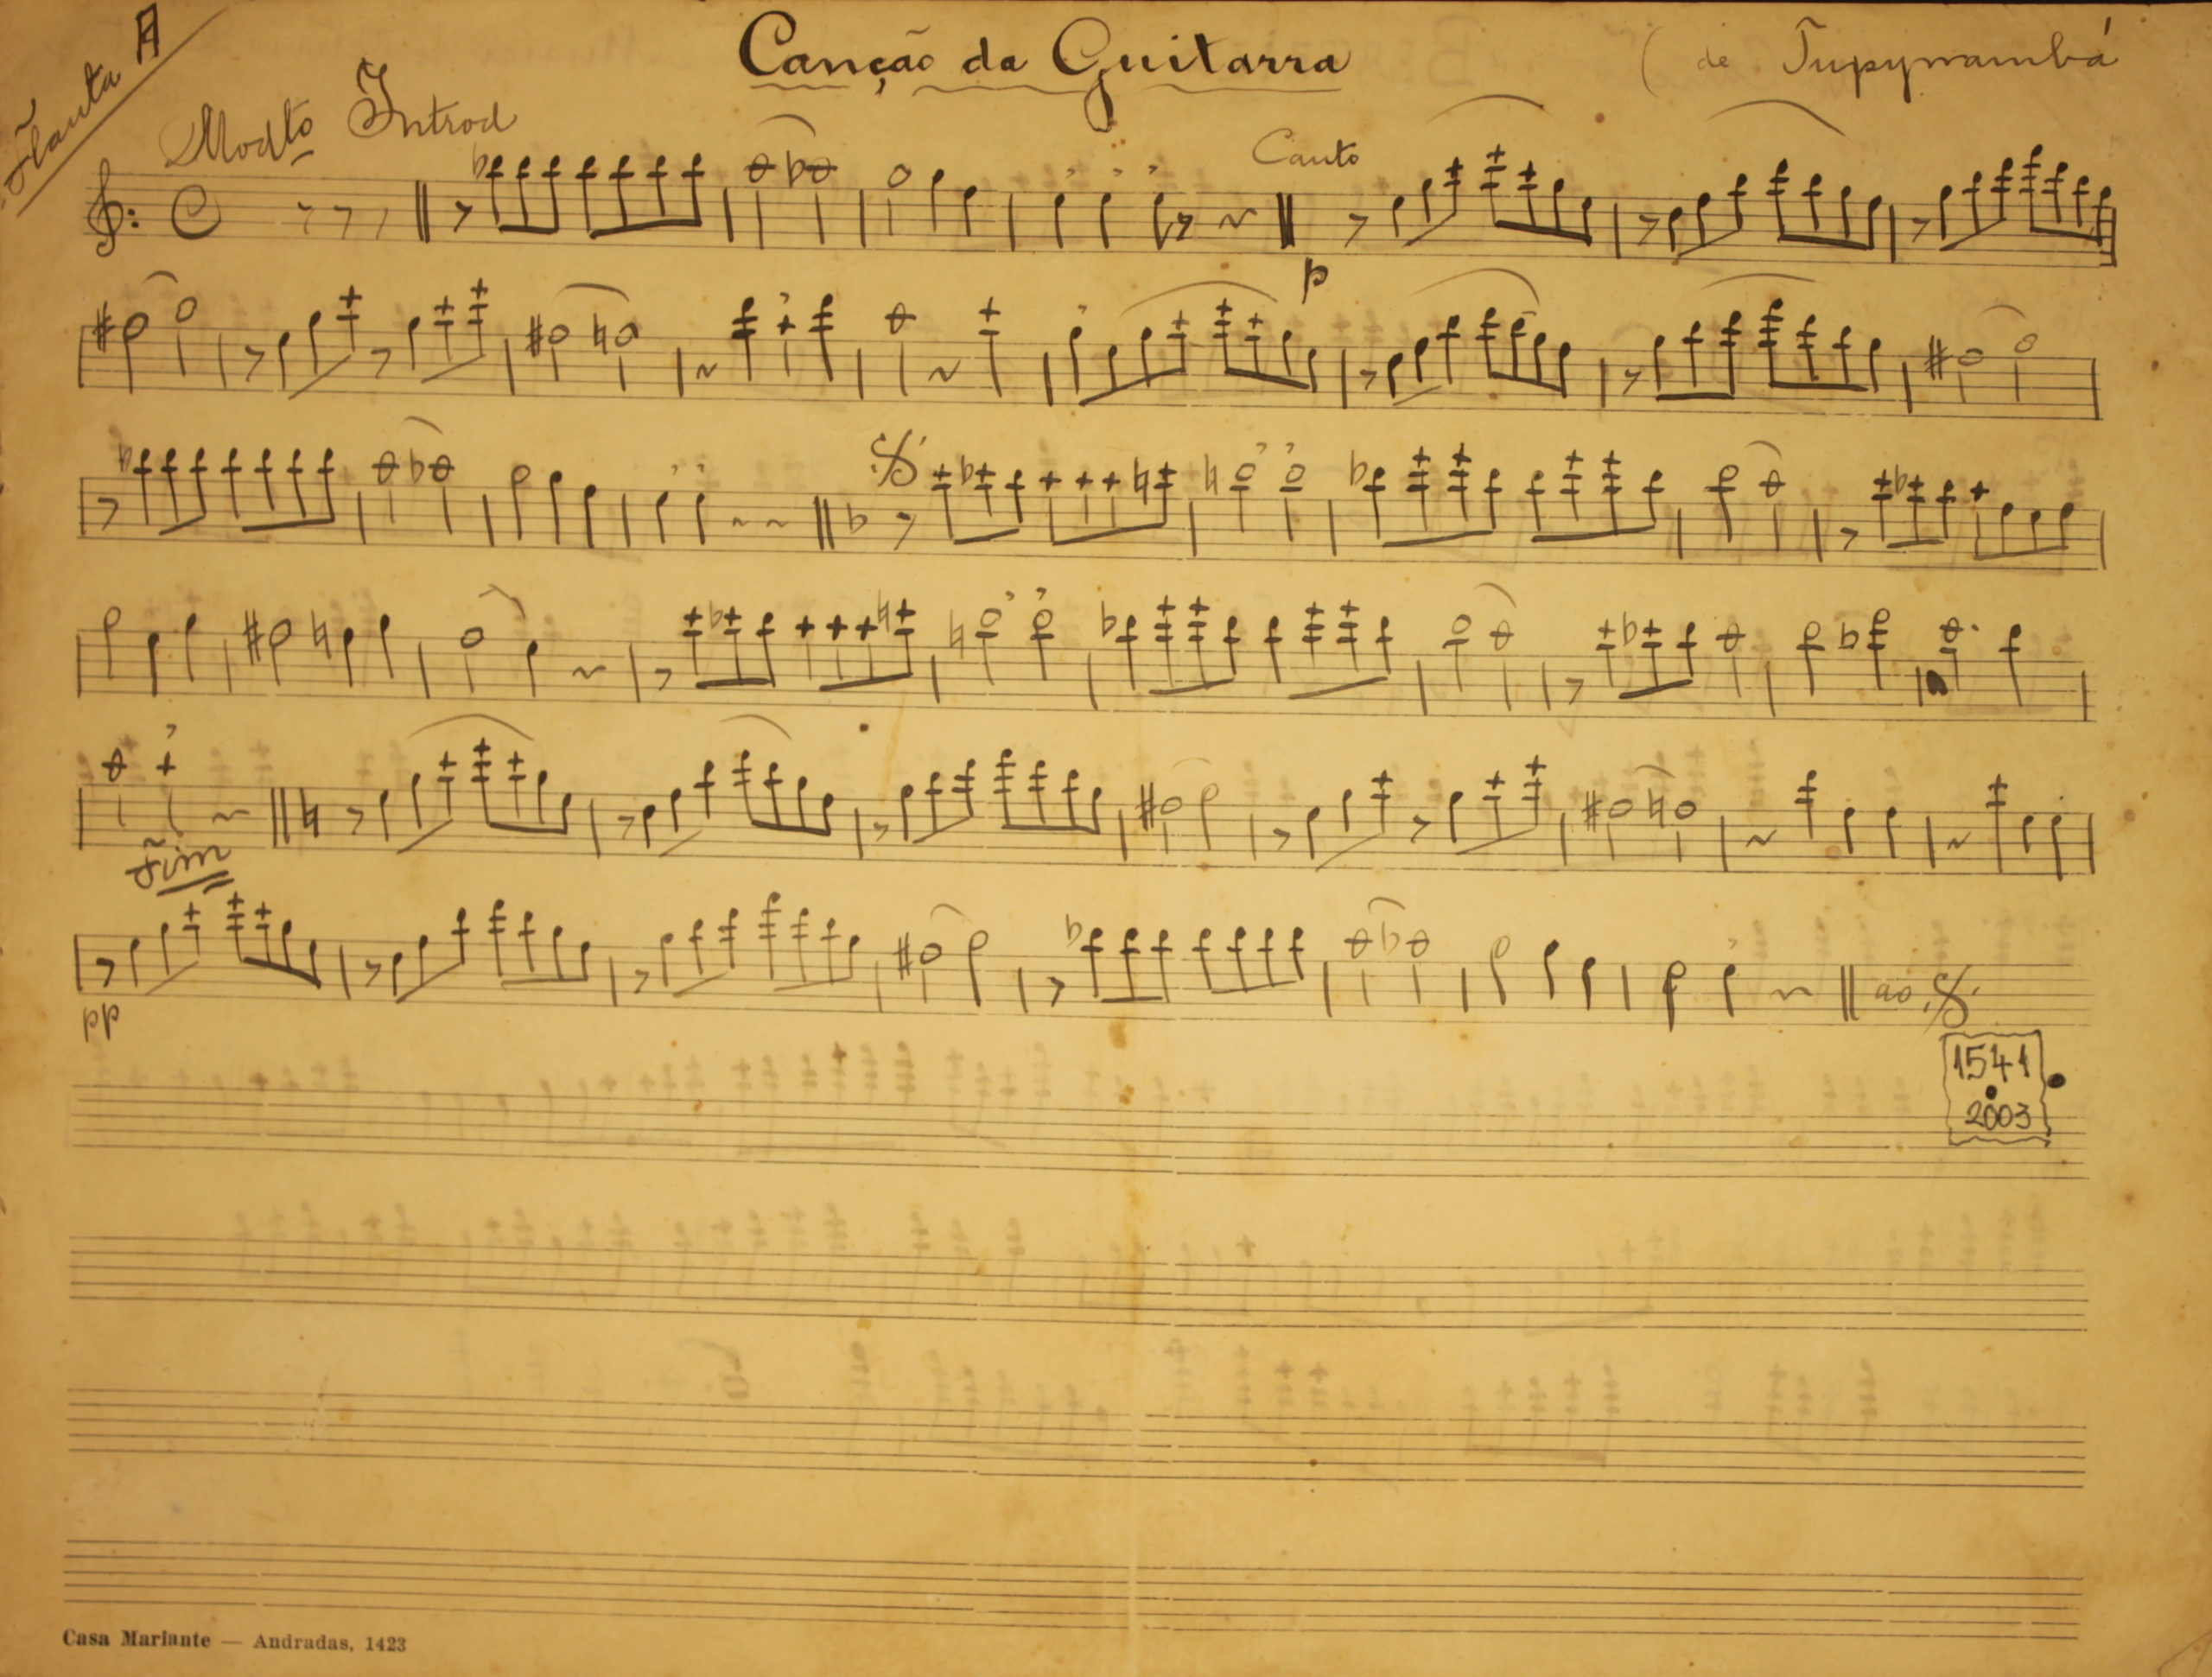 Flauta A
Canção da Guitarra
( de Tupynambá
Modto Introd
Canto
p
Fim
pp
ao
1541
2003
Casa Mariante — Andradas, 1423